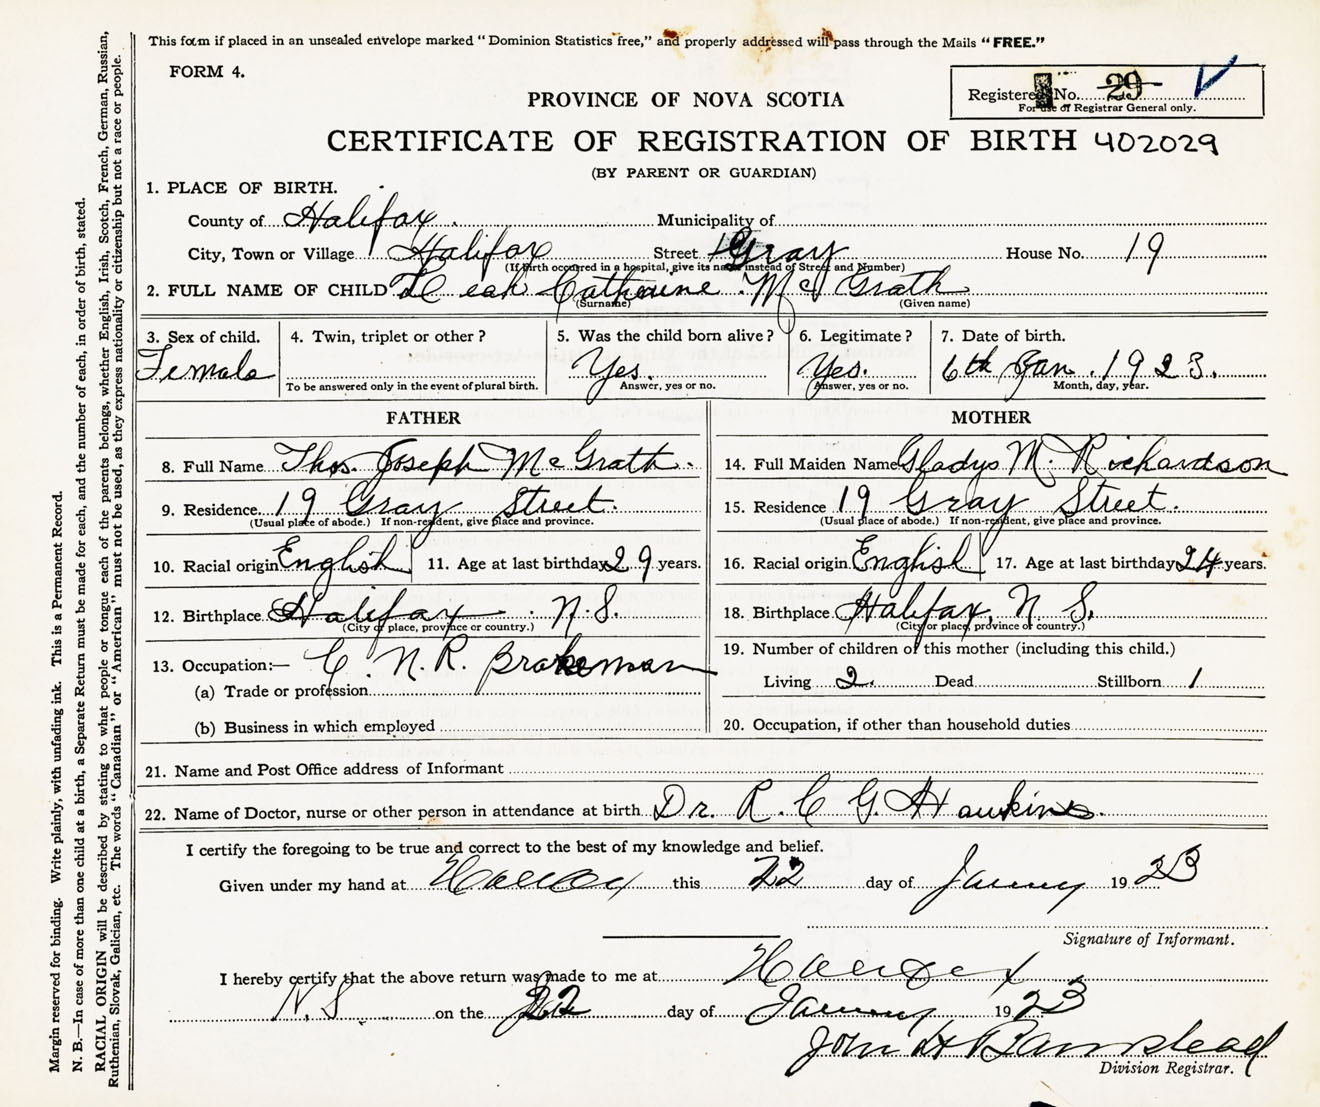 This form if placed in an unsealed envelope marked "Dominion Statistics free," and properly addressed will pass through the Mails "FREE."
FORM 4.
Registered No. 29
For use of Registrar General only.
PROVINCE OF NOVA SCOTIA
CERTIFICATE OF REGISTRATION OF BIRTH 402029
(BY PARENT OR GUARDIAN)
1. PLACE OF BIRTH.
County of Halifax. Municipality of
City, Town or Village Halifax Street Gray House No. 19
(If birth occurred in a hospital, give its name instead of Street and Number)
2. FULL NAME OF CHILD Leah Catherine McGrath
(Surname) (Given name)
3. Sex of child. 4. Twin, triplet or other? 5. Was the child born alive? 6. Legitimate? 7. Date of birth.
Female Yes. Yes. 6th Jan. 1923.
To be answered only in the event of plural birth. Answer, yes or no. Answer, yes or no. Month, day, year.
FATHER
8. Full Name Thos. Joseph McGrath.
9. Residence 19 Gray Street.
(Usual place of abode.) If non-resident, give place and province.
10. Racial origin English 11. Age at last birthday 29 years.
12. Birthplace Halifax N.S.
(City or place, province or country.)
13. Occupation:— C.N.R. Brakeman
(a) Trade or profession
(b) Business in which employed
MOTHER
14. Full Maiden Name Gladys M. Richardson
15. Residence 19 Gray Street.
(Usual place of abode.) If non-resident, give place and province.
16. Racial origin English 17. Age at last birthday 24 years.
18. Birthplace Halifax, N.S.
(City or place, province or country.)
19. Number of children of this mother (including this child.)
Living 2. Dead Stillborn 1
20. Occupation, if other than household duties
21. Name and Post Office address of Informant
22. Name of Doctor, nurse or other person in attendance at birth Dr. R. C. G. Hawkins.
I certify the foregoing to be true and correct to the best of my knowledge and belief.
Given under my hand at Halifax this 22 day of January 1923
Signature of Informant.
I hereby certify that the above return was made to me at Halifax
N.S. on the 22 day of January 1923
John H Barnstead
Division Registrar.
Margin reserved for binding. Write plainly, with unfading ink. This is a Permanent Record.
N. B.—In case of more than one child at a birth, a Separate Return must be made for each, and the number of each, in order of birth, stated.
RACIAL ORIGIN will be described by stating to what people or tongue each of the parents belongs, whether English, Irish, Scotch, French, German, Russian,
Ruthenian, Slovak, Galician, etc. The words "Canadian" or "American" must not be used, as they express nationality or citizenship but not a race or people.